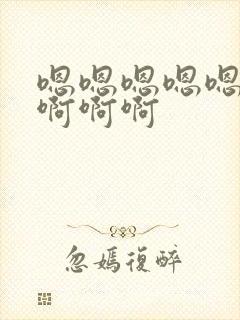 嗯嗯嗯嗯嗯
啊啊啊
忽媽復醉